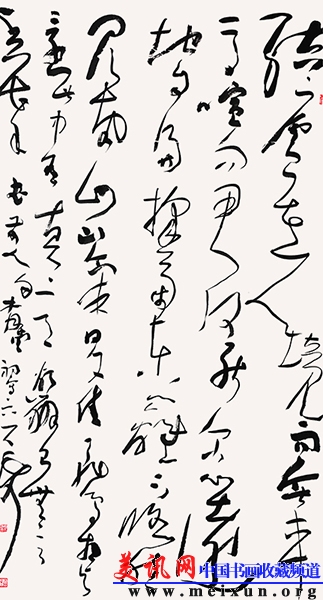 结庐在人境而無車
马喧问君何能尔心遠
地自偏採菊東籬下悠然
見南山山氣日夕佳飛鳥相与
還此中有真意欲辨已忘言
美讯网 中国书画收藏频道
www.meixun.org